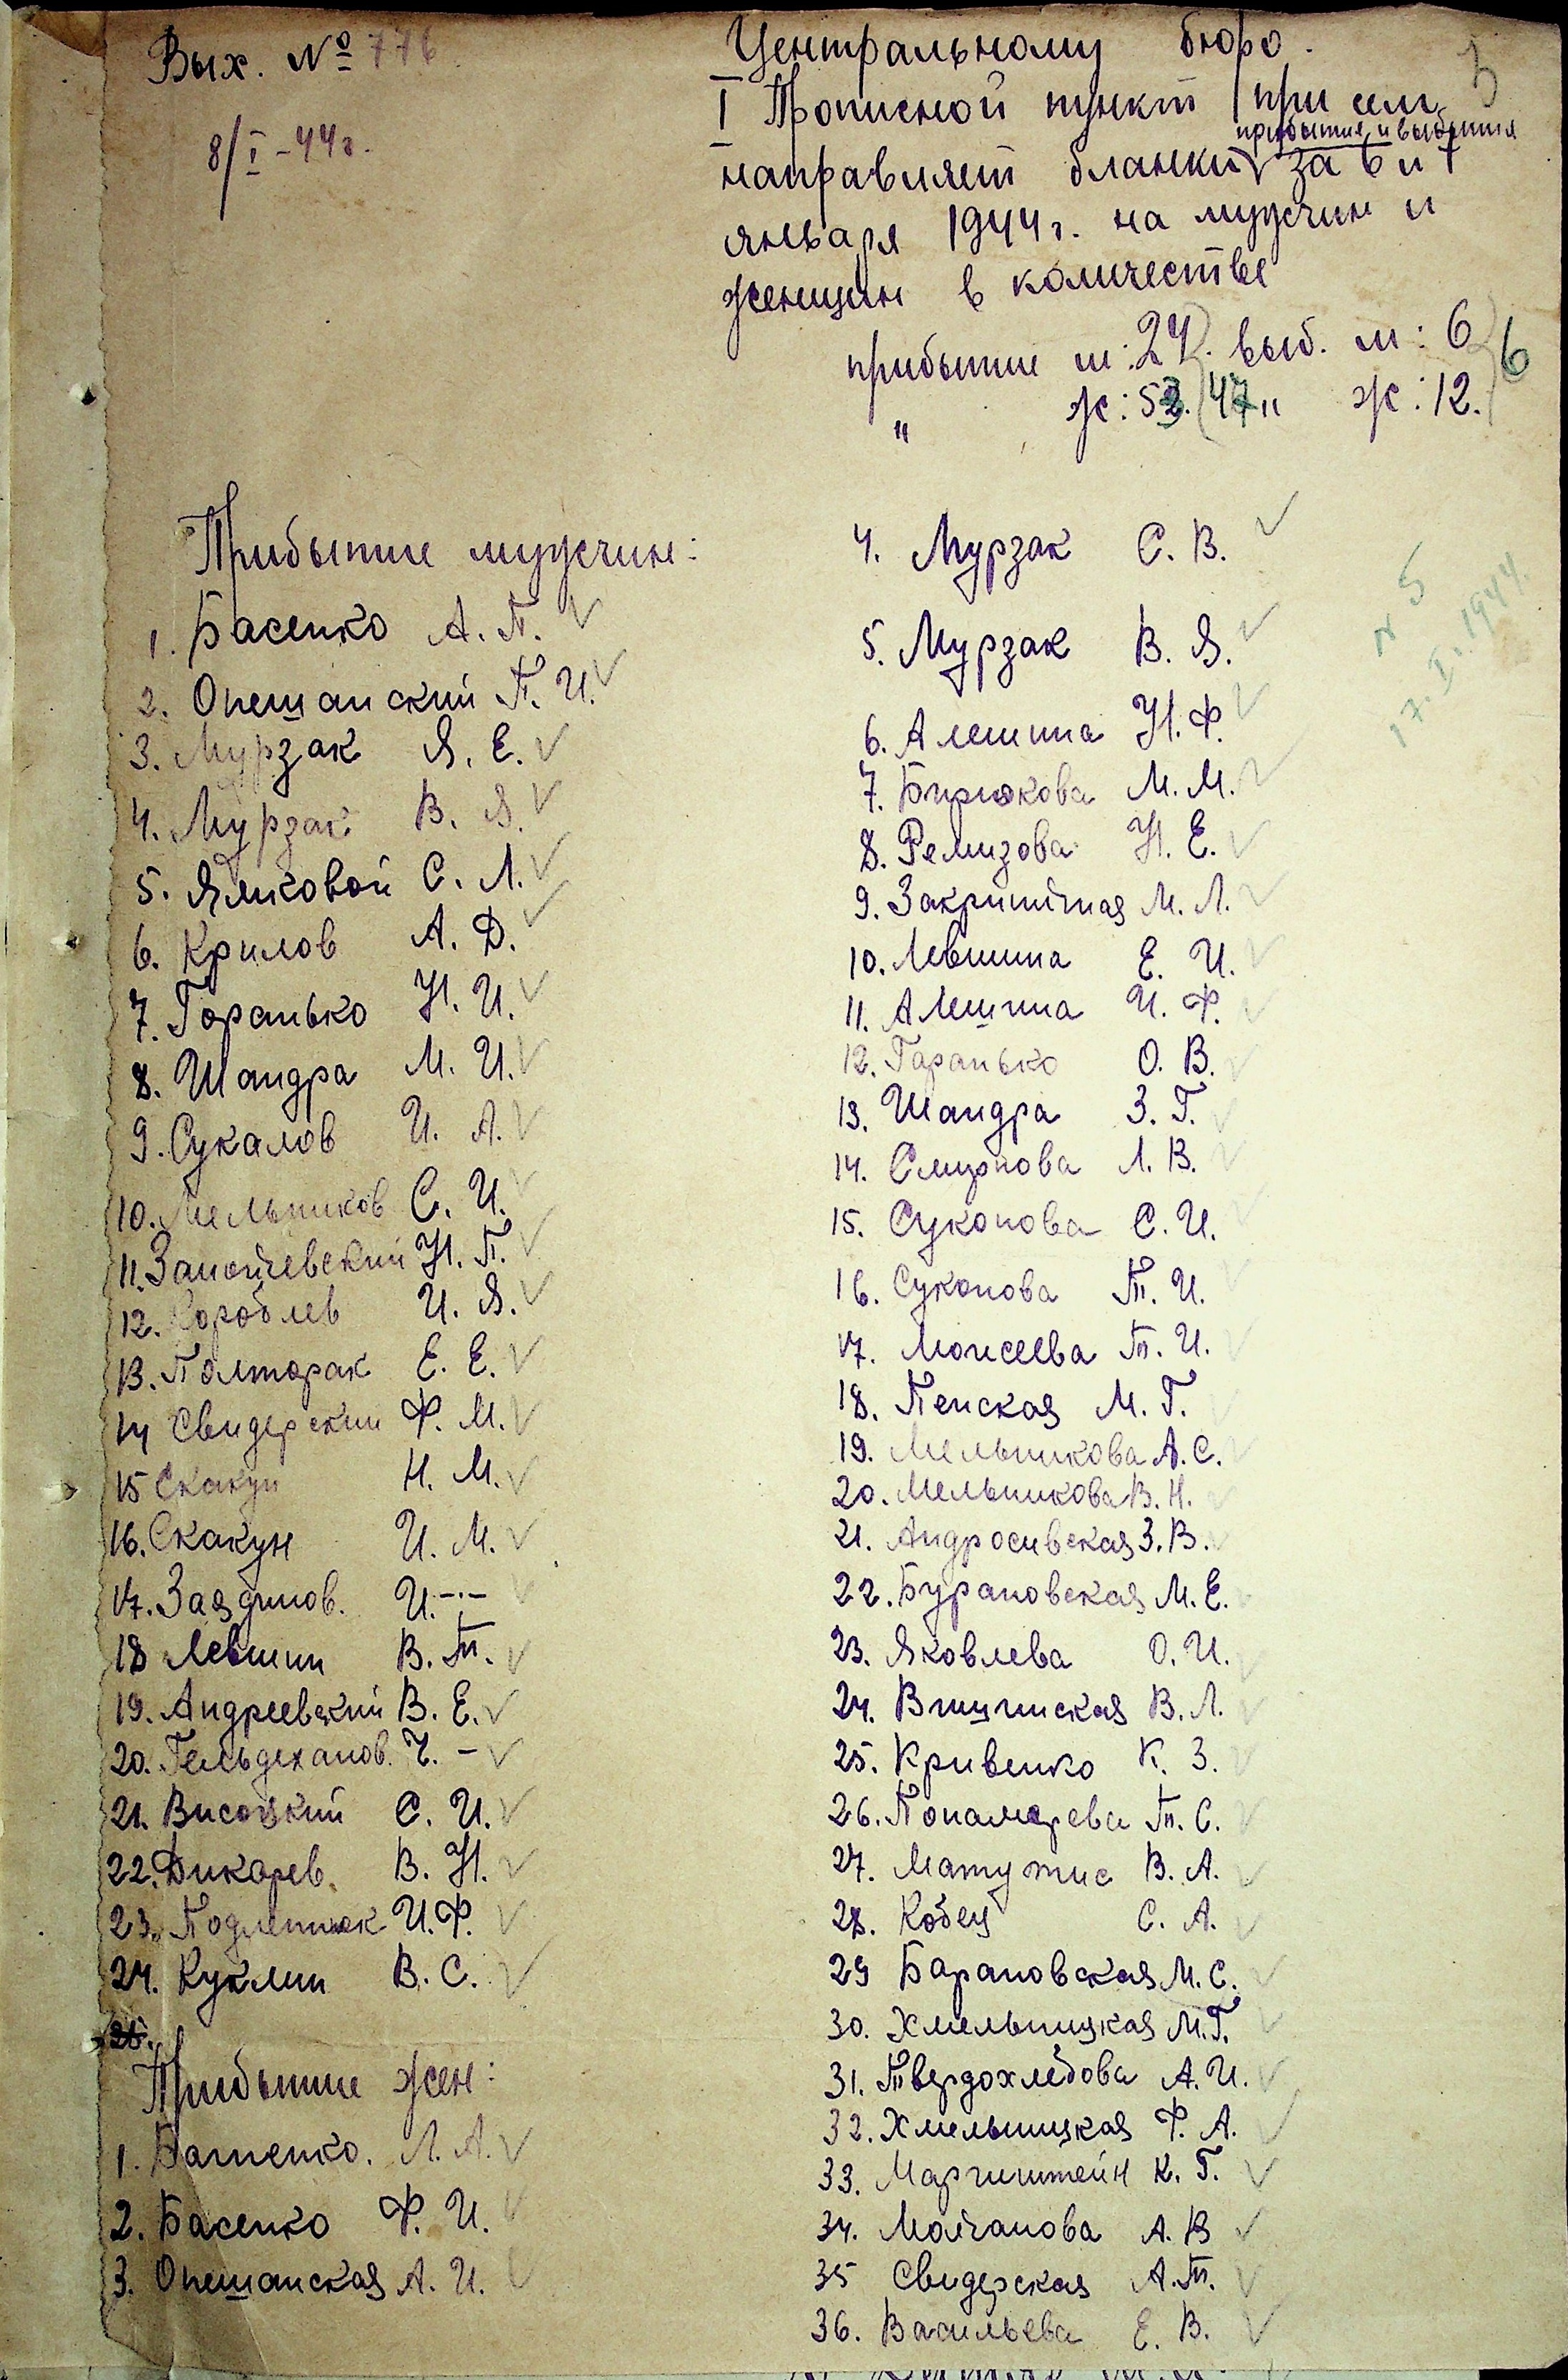 Вых. № 776
8/I-44г.
Центральному бюро.
I Прописной пункт при ... 
прибытия и выбытия
направляет бланки за 6 и 7
января 1944г. на мужчин и
женщин в количестве
прибытие м: 24. выб. м: 6 6
" ж: 53. 47 " ж: 12.
№ 5
17.I.1944.
Прибытие мужчин:
1. Басенко А. П.
2. Опешанский П. И.
3. Мурзак Я. Е.
4. Мурзак В. Я.
5. Ямковой С. Л.
6. Крилов А. Д.
7. Горанько Н. И.
8. Шандра М. И.
9. Сукалов И. А.
10. Мельников С. И.
11. Замойчевский Н. П.
12. Короблев И. Я.
13. Полторак Е. Е.
14 Свидерский Ф. М.
15 Скакун Н. М.
16. Скакун И. М.
17. Заядинов. И.-.-
18 Левшин В. Т.
19. Андреевский В. Е.
20. Гельдеханов. Ч. -
21. Висоцкий С. И.
22. Дикарев. В. Н.
23. Подлетнюк И. Ф.
24. Куклин В. С.
25.
Прибытие жен:
1. Ващенко. Л. А.
2. Басенко Ф. И.
3. Опешанская А. И.
4. Мурзак С. В.
5. Мурзак В. Я.
6. Алешина Н. Ф.
7. Бирюкова М. М.
8. Ремизова Н. Е.
9. Закринична­я М. Л.
10. Левшина Е. И.
11. Алешина И. Ф.
12. Гаранько О. В.
13. Шандра З. Г.
14. Смирнова Л. В.
15. Суконова С. И.
16. Суконова Т. И.
17. Моисеева Т. И.
18. Пенская М. Г.
19. Мельникова А. С.
20. Мельникова В. Н.
21. Андросивская З. В.
22. Бурановская М. Е.
23. Яковлева О. И.
24. Вишинская В. Л.
25. Кривенко К. З.
26. Понамарева Т. С.
27. Матутис В. А.
28. Кобец С. А.
29 Барановская М. С.
30. Хмельницкая М. Г.
31. Твердохлебова А. И.
32. Хмельницкая Ф. А.
33. Маргинштейн К. Г.
34. Молчанова А. В
35 Свидерская А. Т.
36. Васильева Е. В.